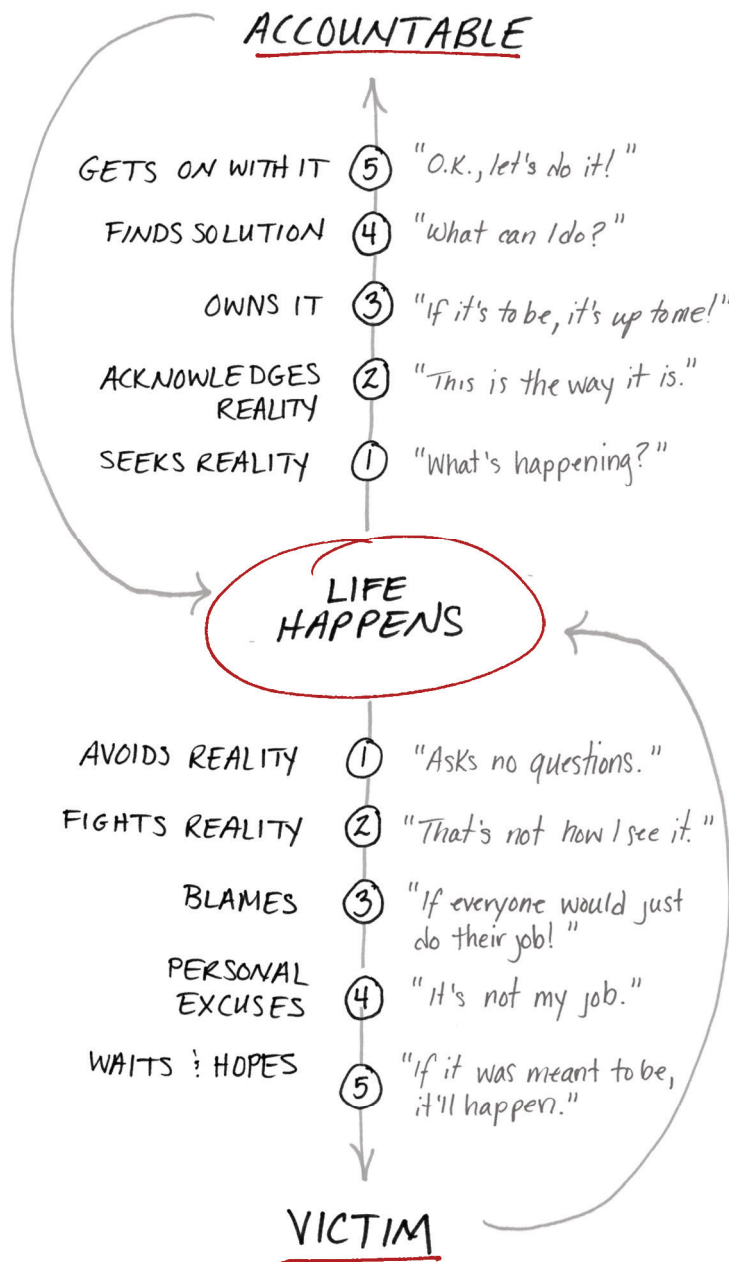 ACCOUNTABLE
GETS ON WITH IT 5 "O.K., let's do it!"
FINDS SOLUTION 4 "What can I do?"
OWNS IT 3 "If it's to be, it's up to me!"
ACKNOWLEDGES
REALITY
2 "This is the way it is."
SEEKS REALITY 1 "What's happening?"
LIFE
HAPPENS
AVOIDS REALITY 1 "Asks no questions."
FIGHTS REALITY 2 "That's not how I see it."
BLAMES 3 "If everyone would just
do their job!"
PERSONAL
EXCUSES
4 "It's not my job."
WAITS & HOPES 5 "If it was meant to be,
it'll happen."
VICTIM